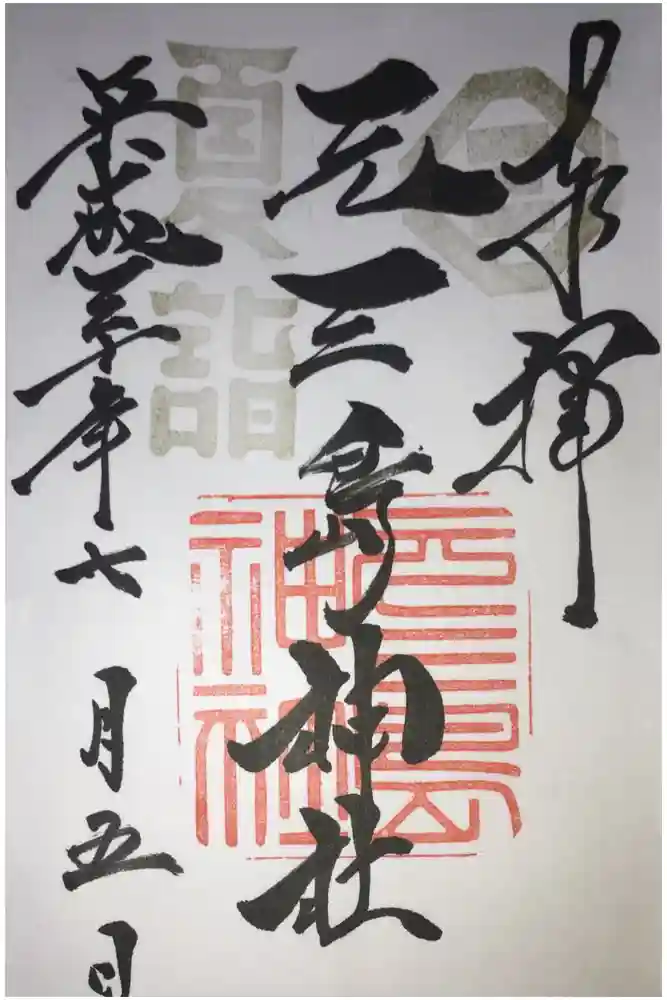 奉拝
元三島神社
夏詣
平成三十年七月五日
元三島神社